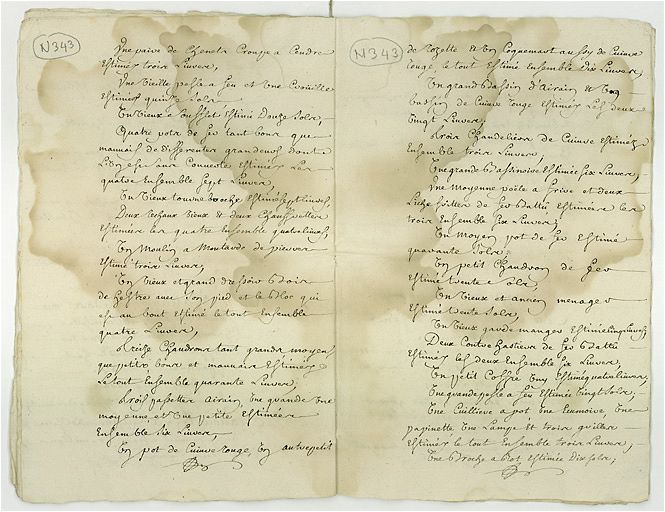 N343
Une paire de Chenets Crouze a Cendre
Estimés trois Livres,
Une Vieille pelle a feu et Une
Estimées quinze Sols,
Un Vieux soufflet Estimé Douze Sols,
Quatre pots de fer tant bons que
mauvais de differentes grandeurs dont
L'Un est sans Couvercle Estimés Les
quatre Ensemble Sept Livres,
Un Vieux tournebroche Estimé sept Livres,
Deux rechaux vieux et deux Chauffrettes
Estimées les quatre Ensemble quatre Livres
Un Moulin a Moutarde de pierres
Estimé trois Livres,
Un Vieux et grand dressoir Bois
de hestre avec Son pied et le Bloc qui
est au bout Estimé le tout Ensemble
quatre Livres,
Treize Chaudrons tant grands moyens
que petits bons et mauvais Estimés
Le tout Ensemble quarante Livres,
Trois passettes Airain, Une grande Une
moyenne, et Une petite Estimées
Ensemble Six Livres,
Un pot de Cuivre rouge, Un autre petit
N343
de rozette et Un Coquemart au feu de Cuivre
rouge, le tout Estimé Ensemble Dix Livres,
Un grand Bassin d'Airain et Un
bassin de Cuivre rouge Estimés Les deux
Vingt Livres,
Trois Chandeliers de Cuivre Estimés
Ensemble trois Livres,
Une grande Bassinoire Estimée Six Livres,
Une Moyenne poële a frire et deux
Liche frittes de fer Battu Estimées les
trois Ensemble Six Livres,
Un Moyen pot de fer Estimé
quarante Sols,
Un petit Chaudron de fer
Estimé trente Sols,
Un Vieux et ancien menager
Estimé trente Sols,
Un Vieux garde manger Estimé cinq Livres,
Deux Contre hastiers de fer Battu
Estimés les deux Ensemble Six Livres,
Un petit Coffre Estimé quatre Livres,
Une grande pelle a feu Estimée Vingt Sols,
Une Cuilliere a pot Une Ecumoire, Une
papinette Une Lampe et trois grilles
Estimés le tout Ensemble trois Livres,
Une Broche a Rot Estimée Dix Sols,